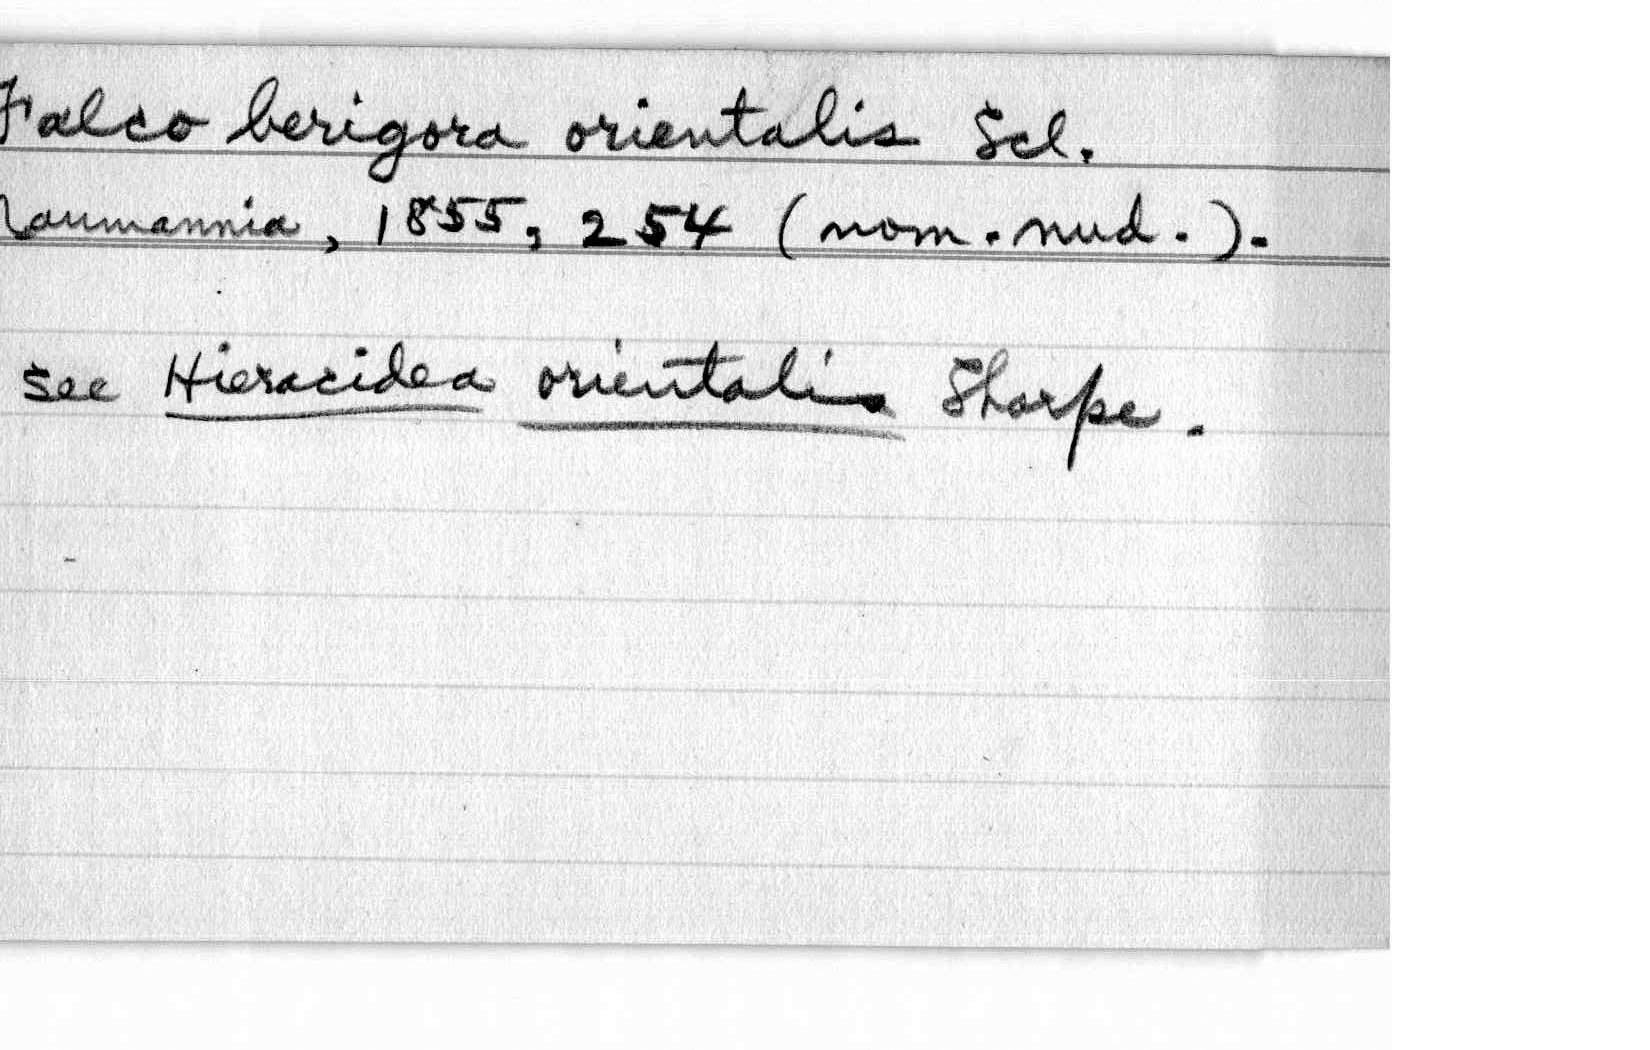 Falco berigora orientalis Scl.
Naumannia, 1855, 254 (nom. nud.).
see Hieracidea orientalis Sharpe.